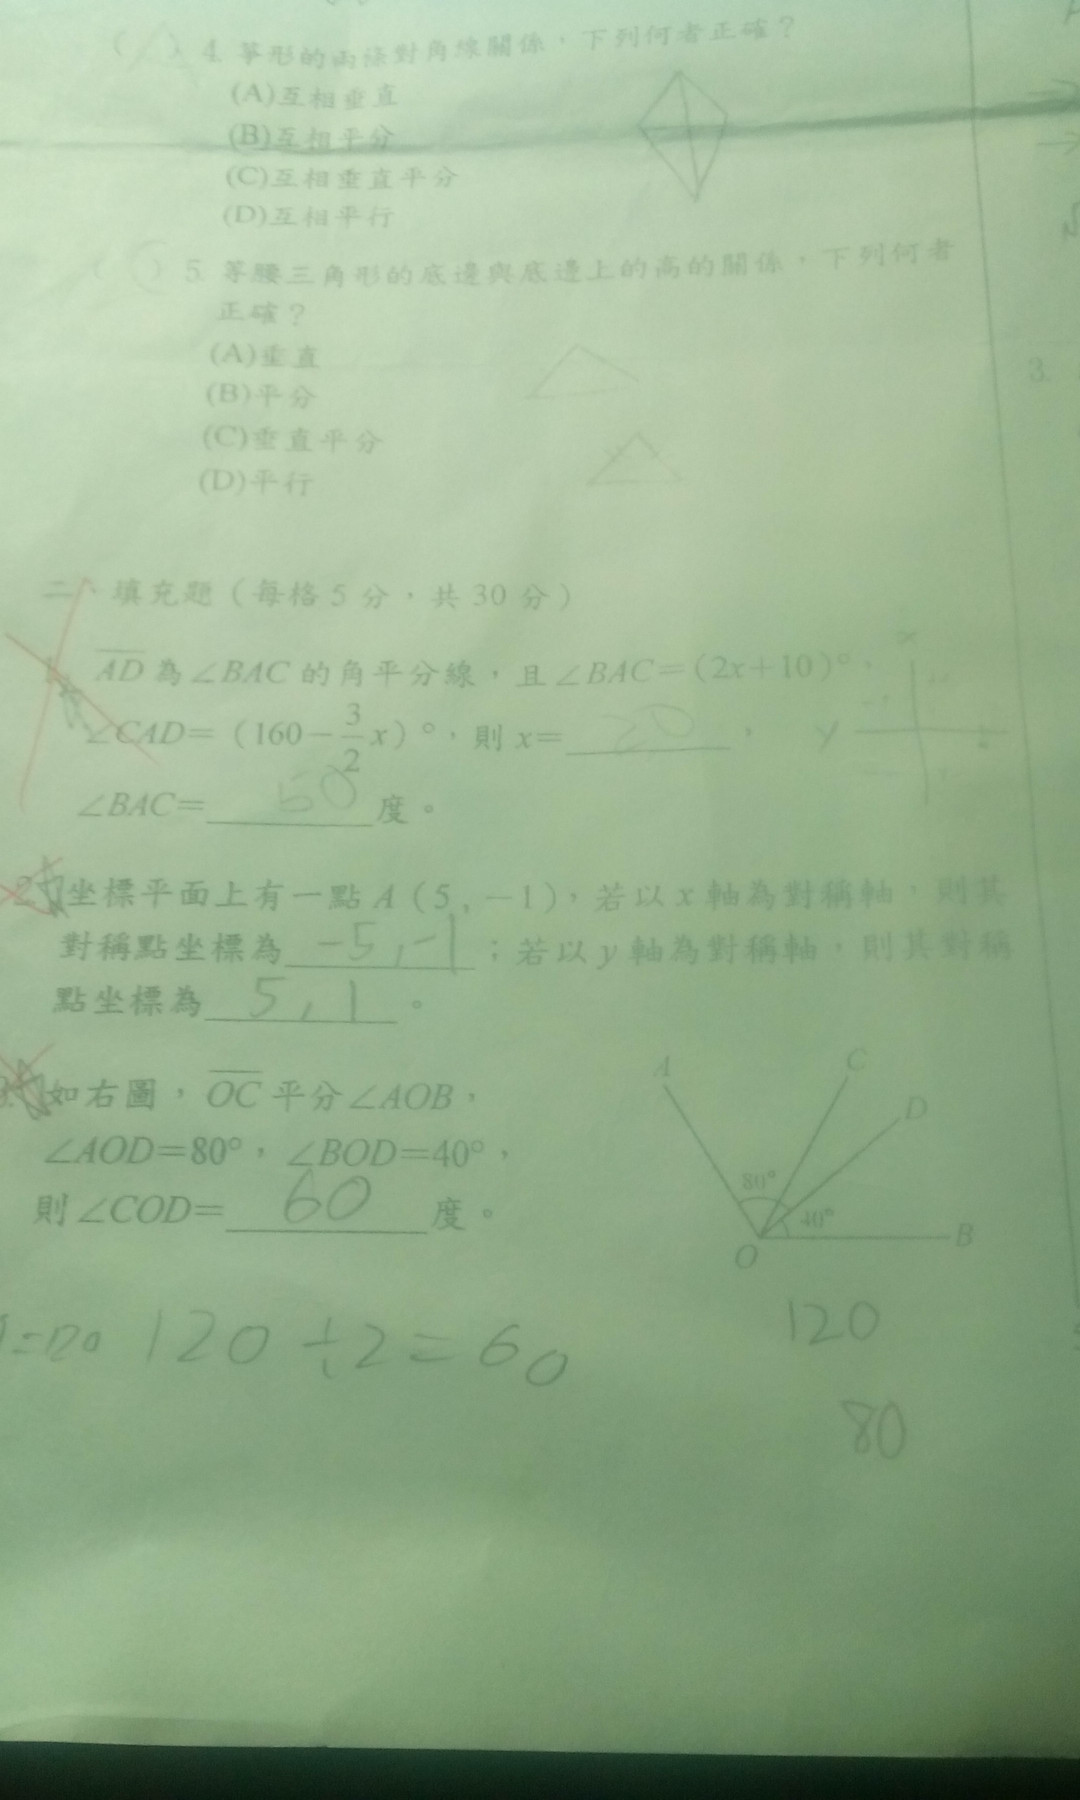 ( ) 4. 箏形的兩條對角線關係，下列何者正確？
(A)互相垂直
(B)互相平分
(C)互相垂直平分
(D)互相平行
( ) 5. 等腰三角形的底邊與底邊上的高的關係，下列何者
正確？
(A)垂直
(B)平分
(C)垂直平分
(D)平行
3.
二、填充題（每格5分，共30分）
AD 為∠BAC 的角平分線，且∠BAC=(2x+10)°，
∠CAD=（160-3/2x）°，則 x= 20 ，
∠BAC= 50 度。
y
2. 坐標平面上有一點 A（5，-1），若以 x 軸為對稱軸，則其
對稱點坐標為 -5,-1 ；若以 y 軸為對稱軸，則其對稱
點坐標為 5,1 。
3. 如右圖，OC 平分∠AOB，
∠AOD=80°，∠BOD=40°，
則∠COD= 60 度。
A
C
D
80°
40°
O
B
=120 120÷2=60
120
80